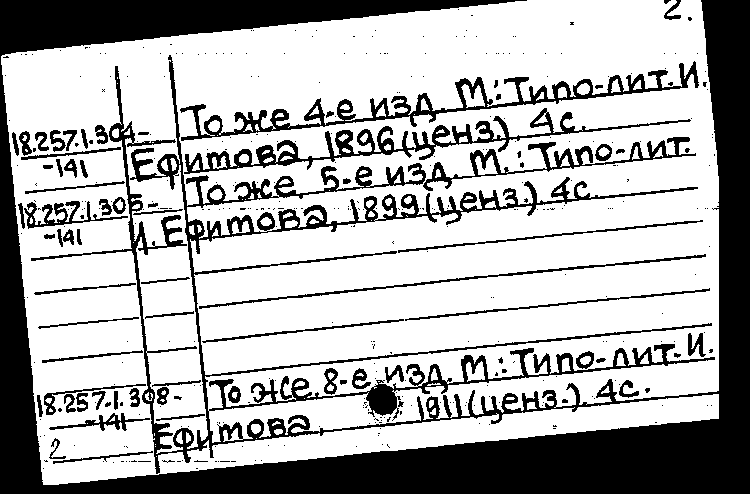 2.
То же 4-е изд. М.: Типо-лит. И.
18.257.1.304-
Ефитова, 1896 (ценз.). 4 с.
-141
То же. 5-е изд. М.: Типо-лит.
18.257.1.305-
И. Ефитова, 1899 (ценз.) 4 с.
-141
То же. 8-е изд. М.: Типо-лит. И.
18.257.1.308-
Ефитова, 1911 (ценз.). 4 с.
-141
2